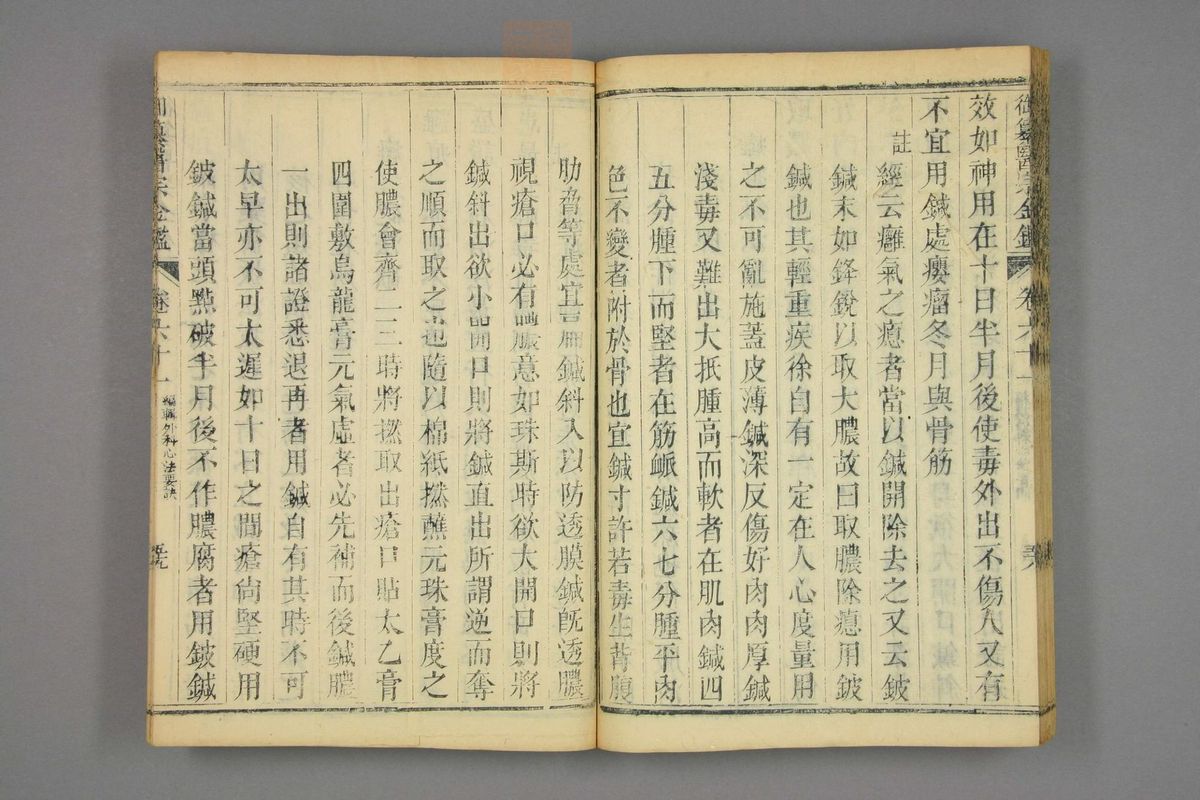 御纂醫宗金鑑 卷六十一
效如神用在十日半月後使毒外出不傷人又有
不宜用鍼處癭瘤冬月與骨筋
註
經云癰氣之瘜者當以鍼開除去之又云鈹
鍼末如鋒銳以取大膿故曰取膿除瘜用鈹
鍼也其輕重疾徐自有一定在人心度量用
之不可亂施蓋皮薄鍼深反傷好肉肉厚鍼
淺毒又難出大抵腫高而軟者在肌肉鍼四
五分腫下而堅者在筋脈鍼六七分腫平肉
色不變者附於骨也宜鍼寸許若毒生背腹
肋脅等處宜扁鍼斜入以防透膜鍼旣透膿
視瘡口必有膿意如珠斯時欲大開口則將
鍼斜出欲小開口則將鍼直出所謂逆而奪
之順而取之也隨以棉紙撚蘸元珠膏度之
使膿會齊二三時將撚取出瘡口貼太乙膏
四圍敷烏龍膏元氣虛者必先補而後鍼膿
一出則諸證悉退再者用鍼自有其時不可
太早亦不可太遲如十日之間瘡尚堅硬用
鈹鍼當頭點破半月後不作膿腐者用鈹鍼
御纂醫宗金鑑 卷六十一 編輯外科心法要訣